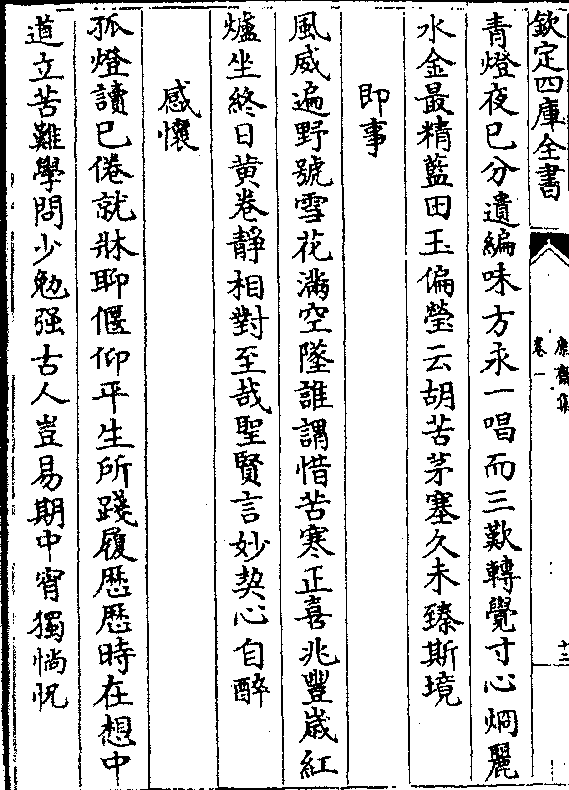 欽定四庫全書
康齋集
卷一
十三
青燈夜已分遺編味方永一唱而三歎轉覺寸心烱麗
水金最精藍田玉偏瑩云胡苦茅塞久未臻斯境
即事
風威遍野號雪花滿空墜誰謂惜苦寒正喜兆豐歲紅
爐坐終日黄卷靜相對至哉聖賢言妙契心自醉
感懷
孤燈讀已倦就牀聊偃仰平生所踐履歴歴時在想中
道立苦難學問少勉强古人豈易期中宵獨惝怳